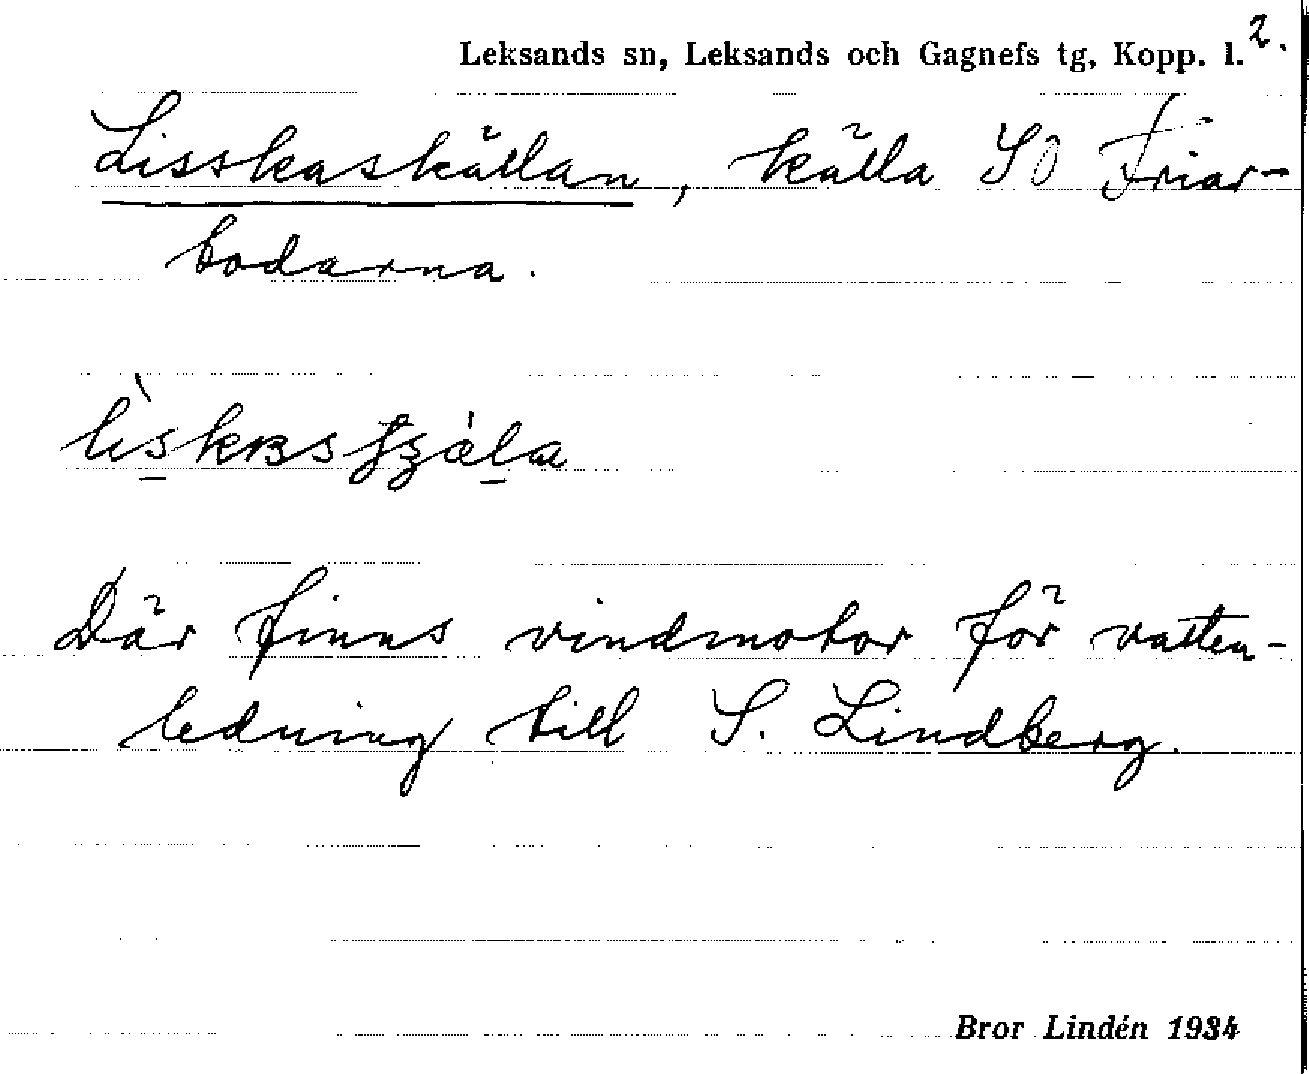 Leksands sn, Leksands och Gagnefs tg, Kopp. l. 2.
Lisskaskällan, källa SO Friar-
bodarna.
Där finns vindmotor för vatten-
ledning till S. Lindberg.
Bror Lindén 1934